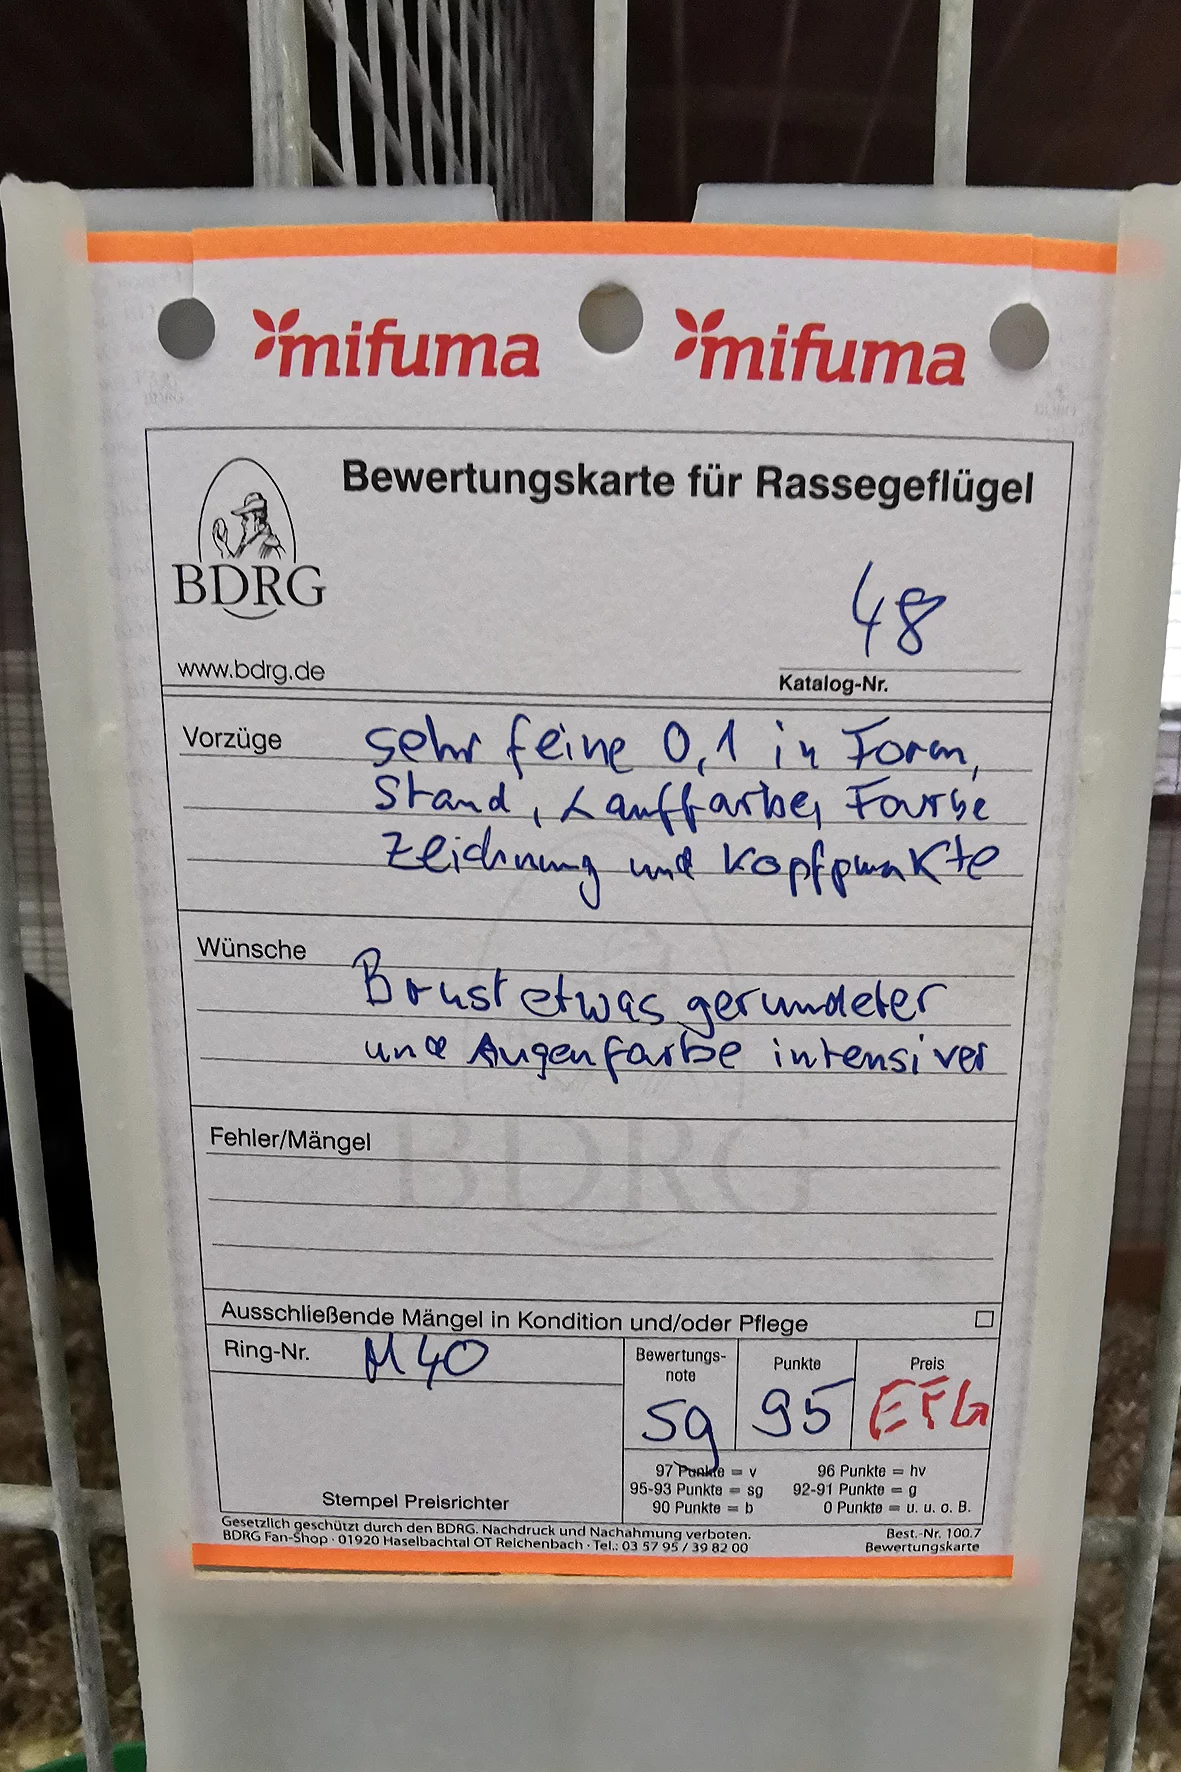 mifuma mifuma
Bewertungskarte für Rassegeflügel
BDRG
www.bdrg.de
48
Katalog-Nr.
Vorzüge sehr feine 0,1 in Form,
Stand, Lauffarbe, Farbe
Zeichnung und Kopfpunkte
Wünsche
Brust etwas gerundeter
und Augenfarbe intensiver
BDRG
Fehler/Mängel
Ausschließende Mängel in Kondition und/oder Pflege
Ring-Nr. M40
Bewertungs-
note
Punkte
Preis
sg 95 EFG
97 Punkte = v 96 Punkte = hv
95-93 Punkte = sg 92-91 Punkte = g
90 Punkte = b 0 Punkte = u. u. o. B.
Stempel Preisrichter
Gesetzlich geschützt durch den BDRG. Nachdruck und Nachahmung verboten. Best.-Nr. 100.7
BDRG Fan-Shop · 01920 Haselbachtal OT Reichenbach · Tel.: 03 57 95 / 39 82 00 Bewertungskarte